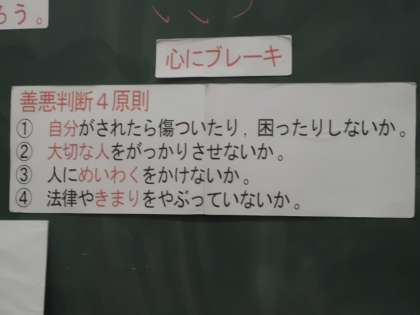 ろう。
心にブレーキ
善悪判断４原則
① 自分がされたら傷ついたり，困ったりしないか。
② 大切な人をがっかりさせないか。
③ 人にめいわくをかけないか。
④ 法律やきまりをやぶっていないか。